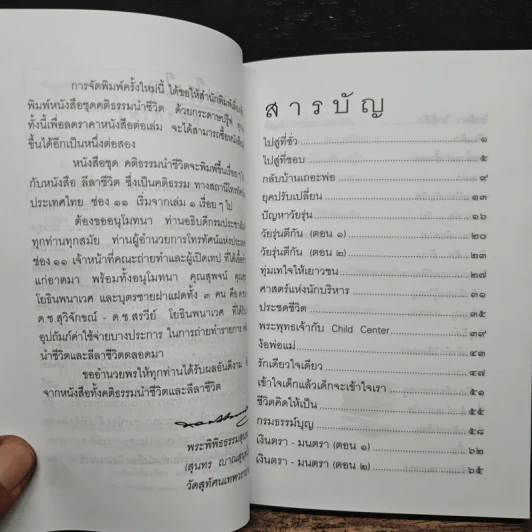 การจัดพิมพ์ครั้งใหม่นี้ ได้ขอให้สำนักพิมพ์
พิมพ์หนังสือชุดคติธรรมนำชีวิต ด้วยกระดาษปรู๊ฟ
ทั้งนี้เพื่อลดราคาหนังสือต่อเล่ม จะได้สามารถซื้อหนังสือ
ขึ้นได้อีกเป็นหนึ่งต่อสอง
หนังสือชุด คติธรรมนำชีวิตจะพิมพ์ขึ้นเรื่อยๆ
กับหนังสือ ลีลาชีวิต ซึ่งเป็นคติธรรม ทางสถานีโทรทัศน์
ประเทศไทย ช่อง ๑๑ เริ่มจากเล่ม ๑ เรื่อยๆ ไป
ต้องขออนุโมทนา ท่านอธิบดีกรมประชา
ทุกท่านทุกสมัย ท่านผู้อำนวยการโทรทัศน์แห่งประเทศ
ช่อง ๑๑ เจ้าหน้าที่คณะถ่ายทำและผู้เปิดเทป ที่ได้เอื้อ
แก่อาตมา พร้อมทั้งอนุโมทนา คุณสุพจน์
โยธินพนาเวศ และบุตรชายฝาแฝดทั้ง ๓ คน คือ
ด.ช.สุวิจักขณ์ - ด.ช.สรวีย์ โยธินพนาเวศ ที่ได้
อุปถัมภ์ค่าใช้จ่ายบางประการ ในการถ่ายทำรายการ
นำชีวิตและลีลาชีวิตตลอดมา
ขออำนวยพรให้ทุกท่านได้รับผลอันดีงาม
จากหนังสือทั้งคติธรรมนำชีวิตและลีลาชีวิต
พระพิพิธธรรมสุนทร
(สุนทร ญาณสุนฺ
วัดสุทัศนเทพวราราม
สารบัญ
ไปสู่ที่ชั่ว ๑
ไปสู่ที่ชอบ ๕
กลับบ้านเถอะพ่อ ๙
ยุคปรับเปลี่ยน ๑๓
ปัญหาวัยรุ่น ๑๖
วัยรุ่นตีกัน (ตอน ๑) ๒๐
วัยรุ่นตีกัน (ตอน ๒) ๒๓
ทุ่มเทใจให้เยาวชน ๒๗
ศาสตร์แห่งนักบริหาร ๓๑
ประชดชีวิต ๓๕
พระพุทธเจ้ากับ Child Center ๓๙
ง้อพ่อแม่ ๔๓
รักเดียวใจเดียว ๔๗
เข้าใจเด็กแล้วเด็กจะเข้าใจเรา ๕๑
ชีวิตคิดให้เป็น ๕๕
กรมธรรม์บุญ ๕๘
เงินตรา - มนตรา (ตอน ๑) ๖๒
เงินตรา - มนตรา (ตอน ๒) ๖๕